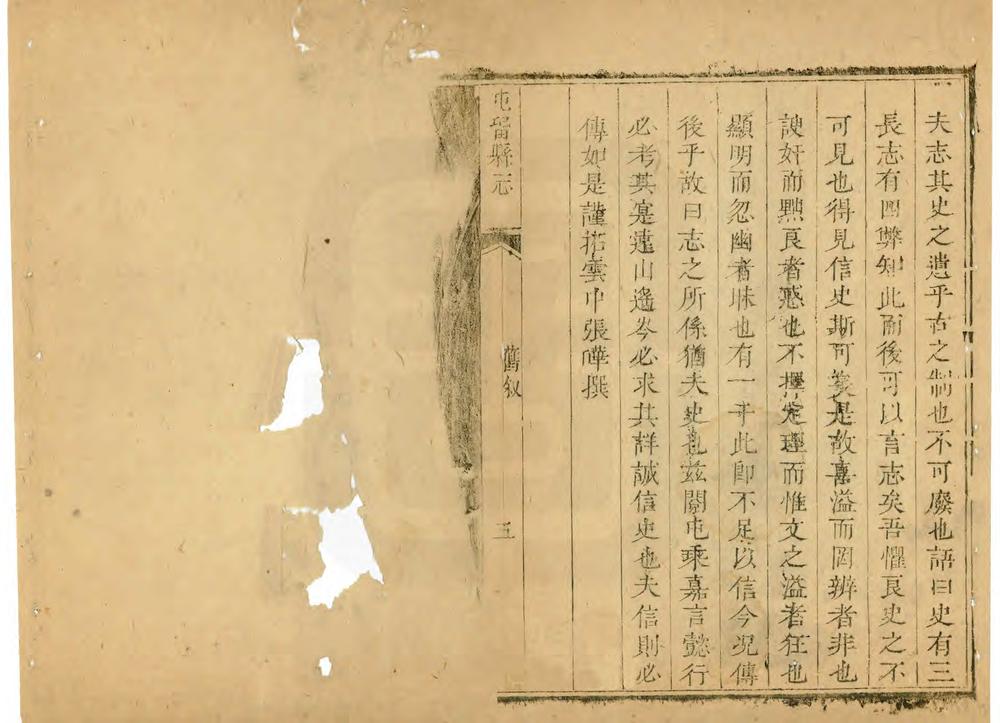 夫志其史之遺乎古之制也不可廢也語曰史有三
長志有四弊知此而後可以言志矣吾懼良史之不
可見也得見信史斯可矣是故喜溢而罔辨者非也
諛奸而黜良者惑也不揆定理而惟文之溢者狂也
顯明而忽幽者昧也有一于此卽不足以信今况傳
後乎故曰志之所係猶夫史也茲閱屯乘嘉言懿行
必考其寔遠山遙岑必求其詳誠信史也夫信則必
傳如是謹雲中張撰
屯留縣志
舊叙
五